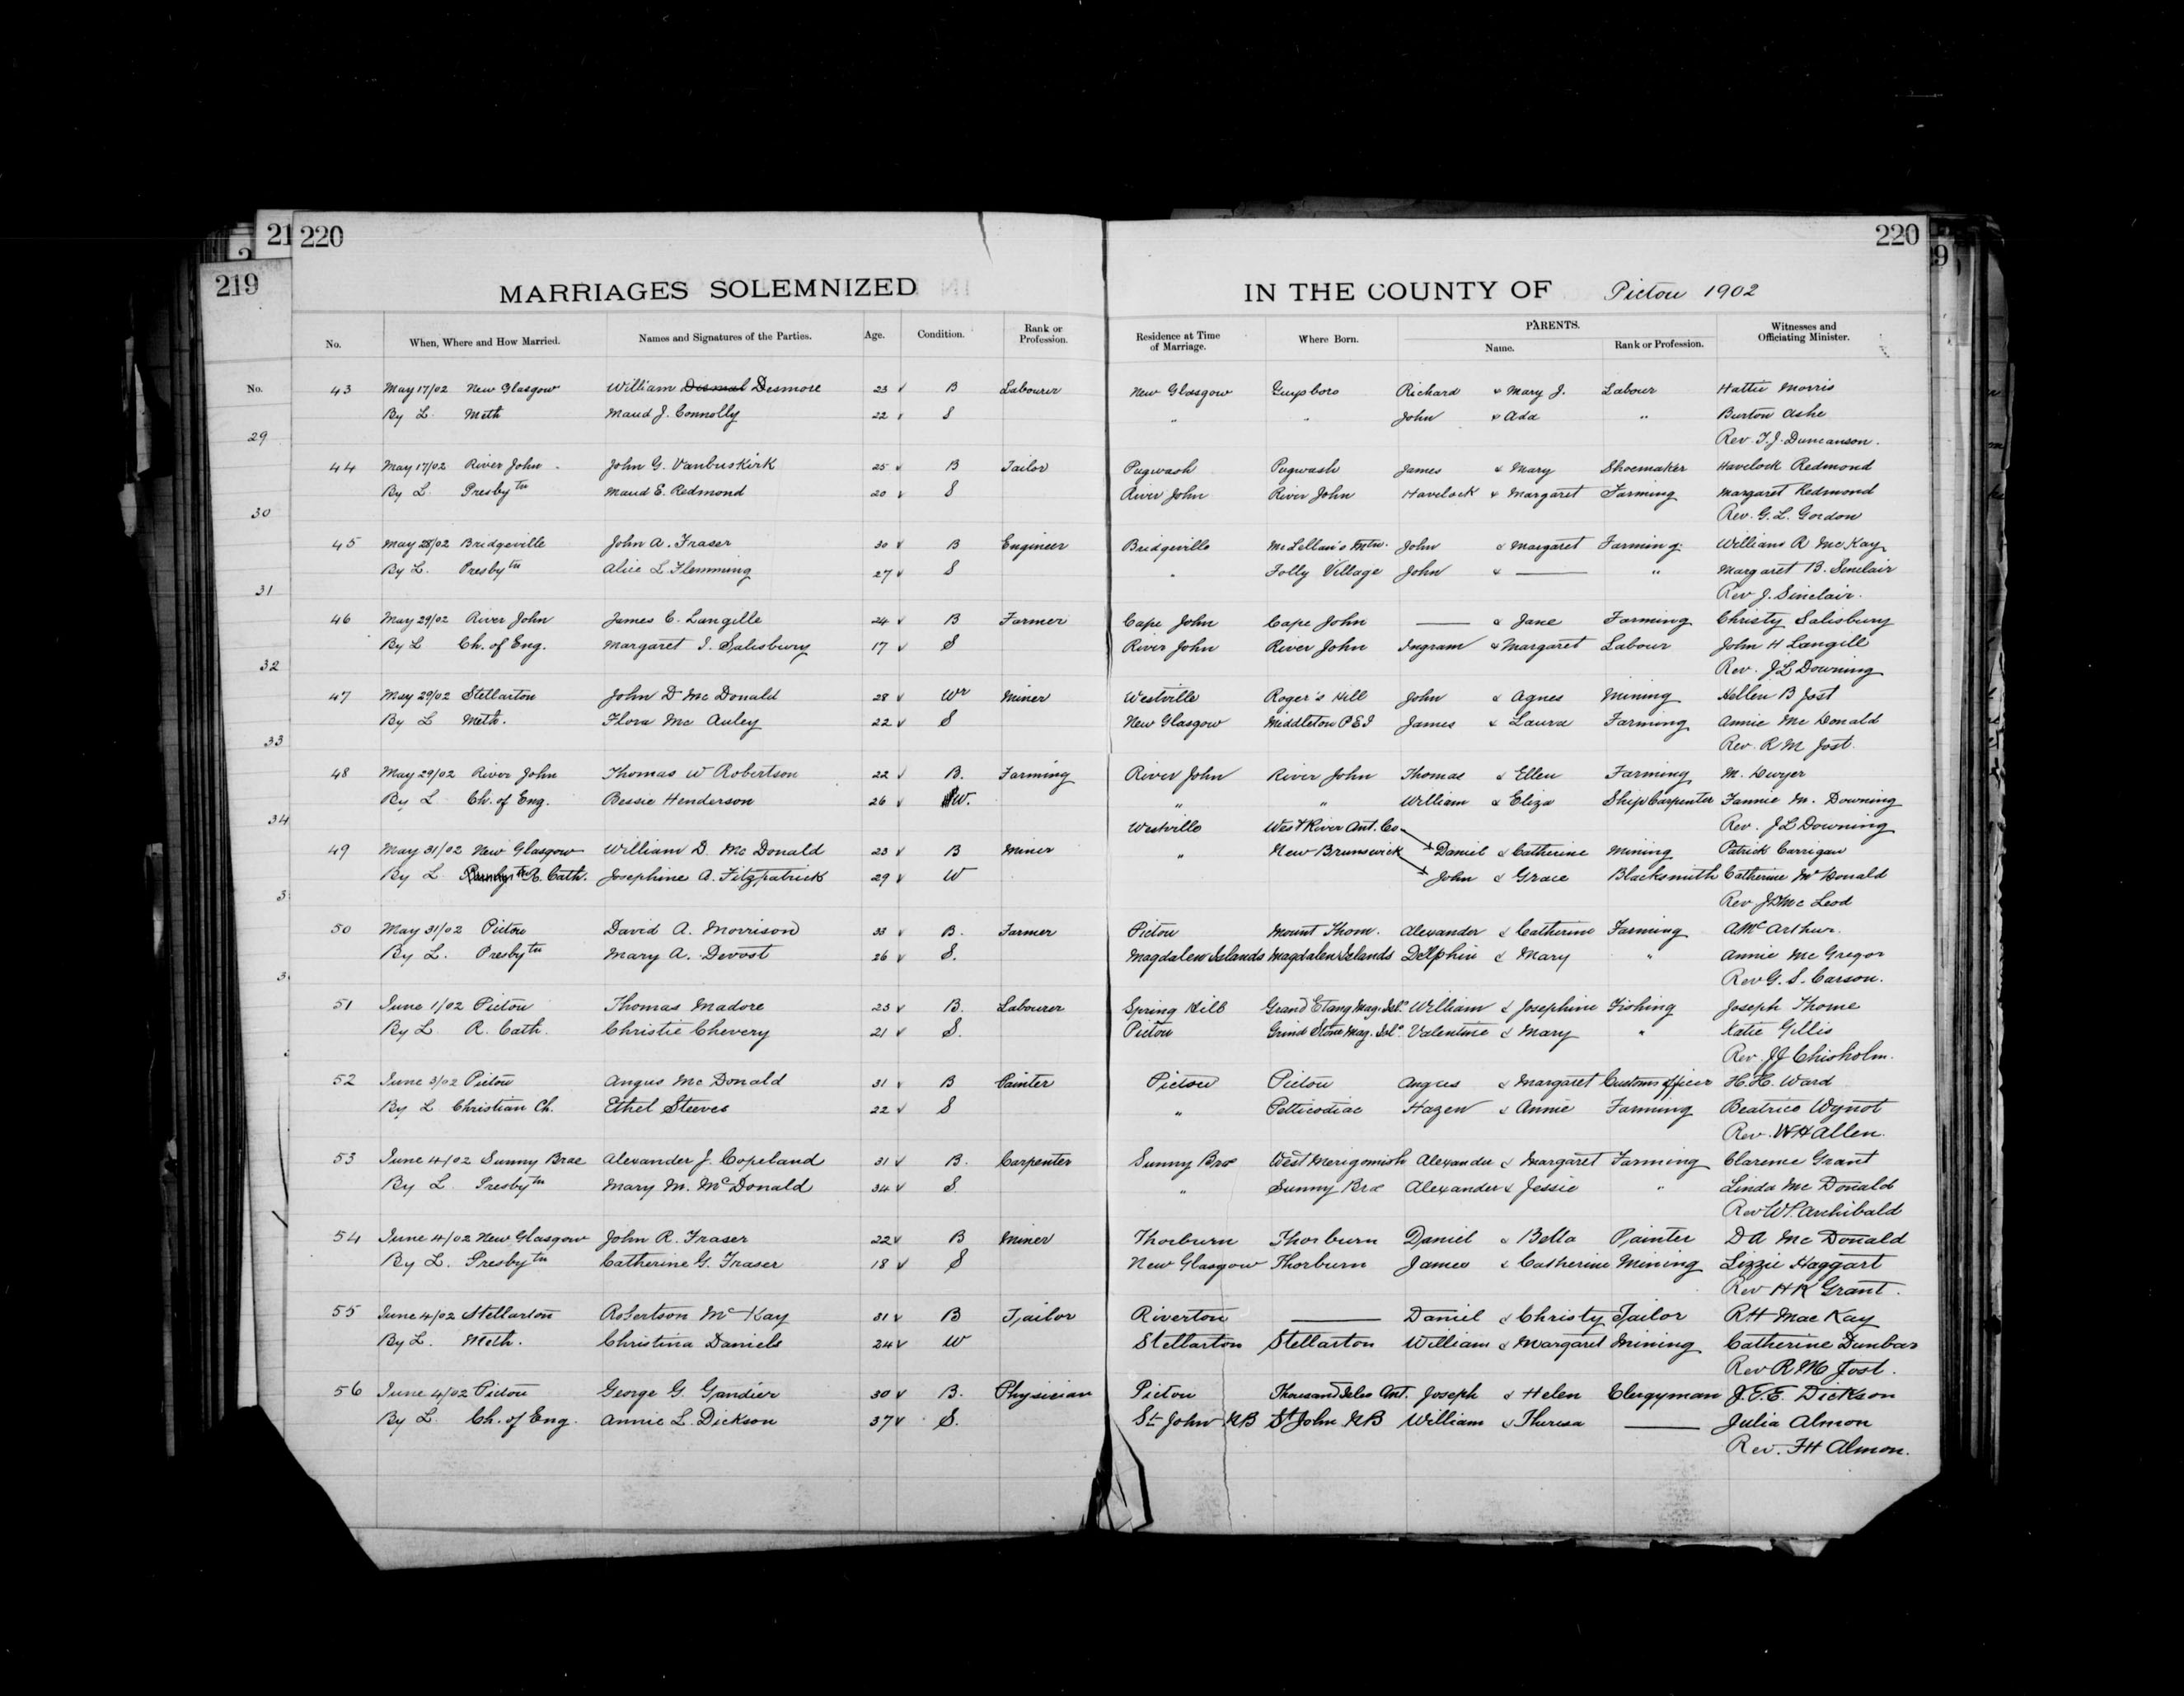 21 220 220 9
219
MARRIAGES SOLEMNIZED IN THE COUNTY OF Pictou 1902
No. When, Where and How Married. Names and Signatures of the Parties. Age. Condition. Rank or Profession. Residence at Time of Marriage. Where Born. PARENTS. Name. Rank or Profession. Witnesses and Officiating Minister.
No. 43 May 17/02 New Glasgow William Desmal Desmore 23 B Labourer New Glasgow Guysboro Richard & Mary J. Labour Hattie Morris
By L. Meth Maud J. Connolly 22 S " " John & Ada " Burton Ashe
29 Rev. T. J. Duncanson.
44 May 17/02 River John John G. Vanbuskirk 25 B Tailor Pugwash Pugwash James & Mary Shoemaker Havelock Redmond
By L Presbytn Maud E. Redmond 20 S River John River John Havelock & Margaret Farming Margaret Redmond
30 Rev. G. L. Gordon
45 May 28/02 Bridgeville John A. Fraser 30 B Engineer Bridgeville McLellan's Mtn. John & Margaret Farming William R McKay
By L. Presbytn Alice L Flemming 27 S " Folly Village John & — " Margaret B. Sinclair
31 Rev J. Sinclair.
46 May 29/02 River John James C. Langille 24 B Farmer Cape John Cape John — & Jane Farming Christy Salisbury
By L Ch. of Eng. Margaret I. Salisbury 17 S River John River John Ingram & Margaret Labour John H Langill
32 Rev. J L Downing
47 May 29/02 Stellarton John D McDonald 28 Wr Miner Westville Roger's Hill John & Agnes Mining Hellen B Jost
By L Meth. Flora McAuley 22 S New Glasgow Middleton P E I James & Laura Farming Annie McDonald
33 Rev. R M Jost.
48 May 29/02 River John Thomas W Robertson 22 B. Farming River John River John Thomas & Ellen Farming M. Dwyer
By L Ch. of Eng. Bessie Henderson 26 W. " " William & Eliza Ship Carpenter Fannie M. Downing
34 Westville West River Ant. Co. Rev. J L Downing
49 May 31/02 New Glasgow William D. McDonald 23 B Miner " New Brunswick Daniel & Catherine Mining Patrick Carrigan
By L R. Cath. Josephine A. Fitzpatrick 29 W John & Grace Blacksmith Catherine McDonald
3 Rev J D McLeod
50 May 31/02 Pictou David A. Morrison 33 B. Farmer Pictou Mount Thom. Alexander & Catherine Farming A McArthur.
By L. Presbytn Mary A. Devost 26 S. Magdalen Islands Magdalen Islands Delphin & Mary " Annie McGregor
3 Rev G. S. Carson.
51 June 1/02 Pictou Thomas Madore 23 B. Labourer Spring Hill Grand Etang Mag. Isl. William & Josephine Fishing Joseph Thome
By L R. Cath. Christie Chevery 21 S. Pictou Grind Stone Mag. Isl. Valentine & Mary " Katie Gillis
Rev. J J Chisholm.
52 June 3/02 Pictou Angus McDonald 31 B Painter Pictou Pictou Angus & Margaret Customs Officer H. H. Ward
By L Christian Ch. Ethel Steeves 22 S " Petticodiac Hazen & Annie Farming Beatrice Wynot
Rev. W H Allen.
53 June 4/02 Sunny Brae Alexander J. Copeland 31 B. Carpenter Sunny Brae West Merigomish Alexander & Margaret Farming Clarence Grant
By L. Presbytn Mary M. McDonald 34 S. " Sunny Brae Alexander & Jessie " Linda McDonald
Rev W P. Archibald
54 June 4/02 New Glasgow John R. Fraser 22 B Miner Thorburn Thorburn Daniel & Bella Painter D A McDonald
By L. Presbytn Catherine G. Fraser 18 S New Glasgow Thorburn James & Catherine Mining Lizzie Haggart
Rev H K Grant.
55 June 4/02 Stellarton Robertson McKay 31 B Tailor Riverton — Daniel & Christy Tailor R H MacKay
By L. Meth. Christina Daniels 24 W Stellarton Stellarton William & Margaret Mining Catherine Dunbar
Rev R M Jost.
56 June 4/02 Pictou George G. Gandier 30 B. Physician Pictou Thousand Isles Ont. Joseph & Helen Clergyman J. E. E. Dickson
By L. Ch. of Eng. Annie L. Dickson 37 S. St John N B St John N B William & Theresa — Julia Almon
Rev. F H Almon.